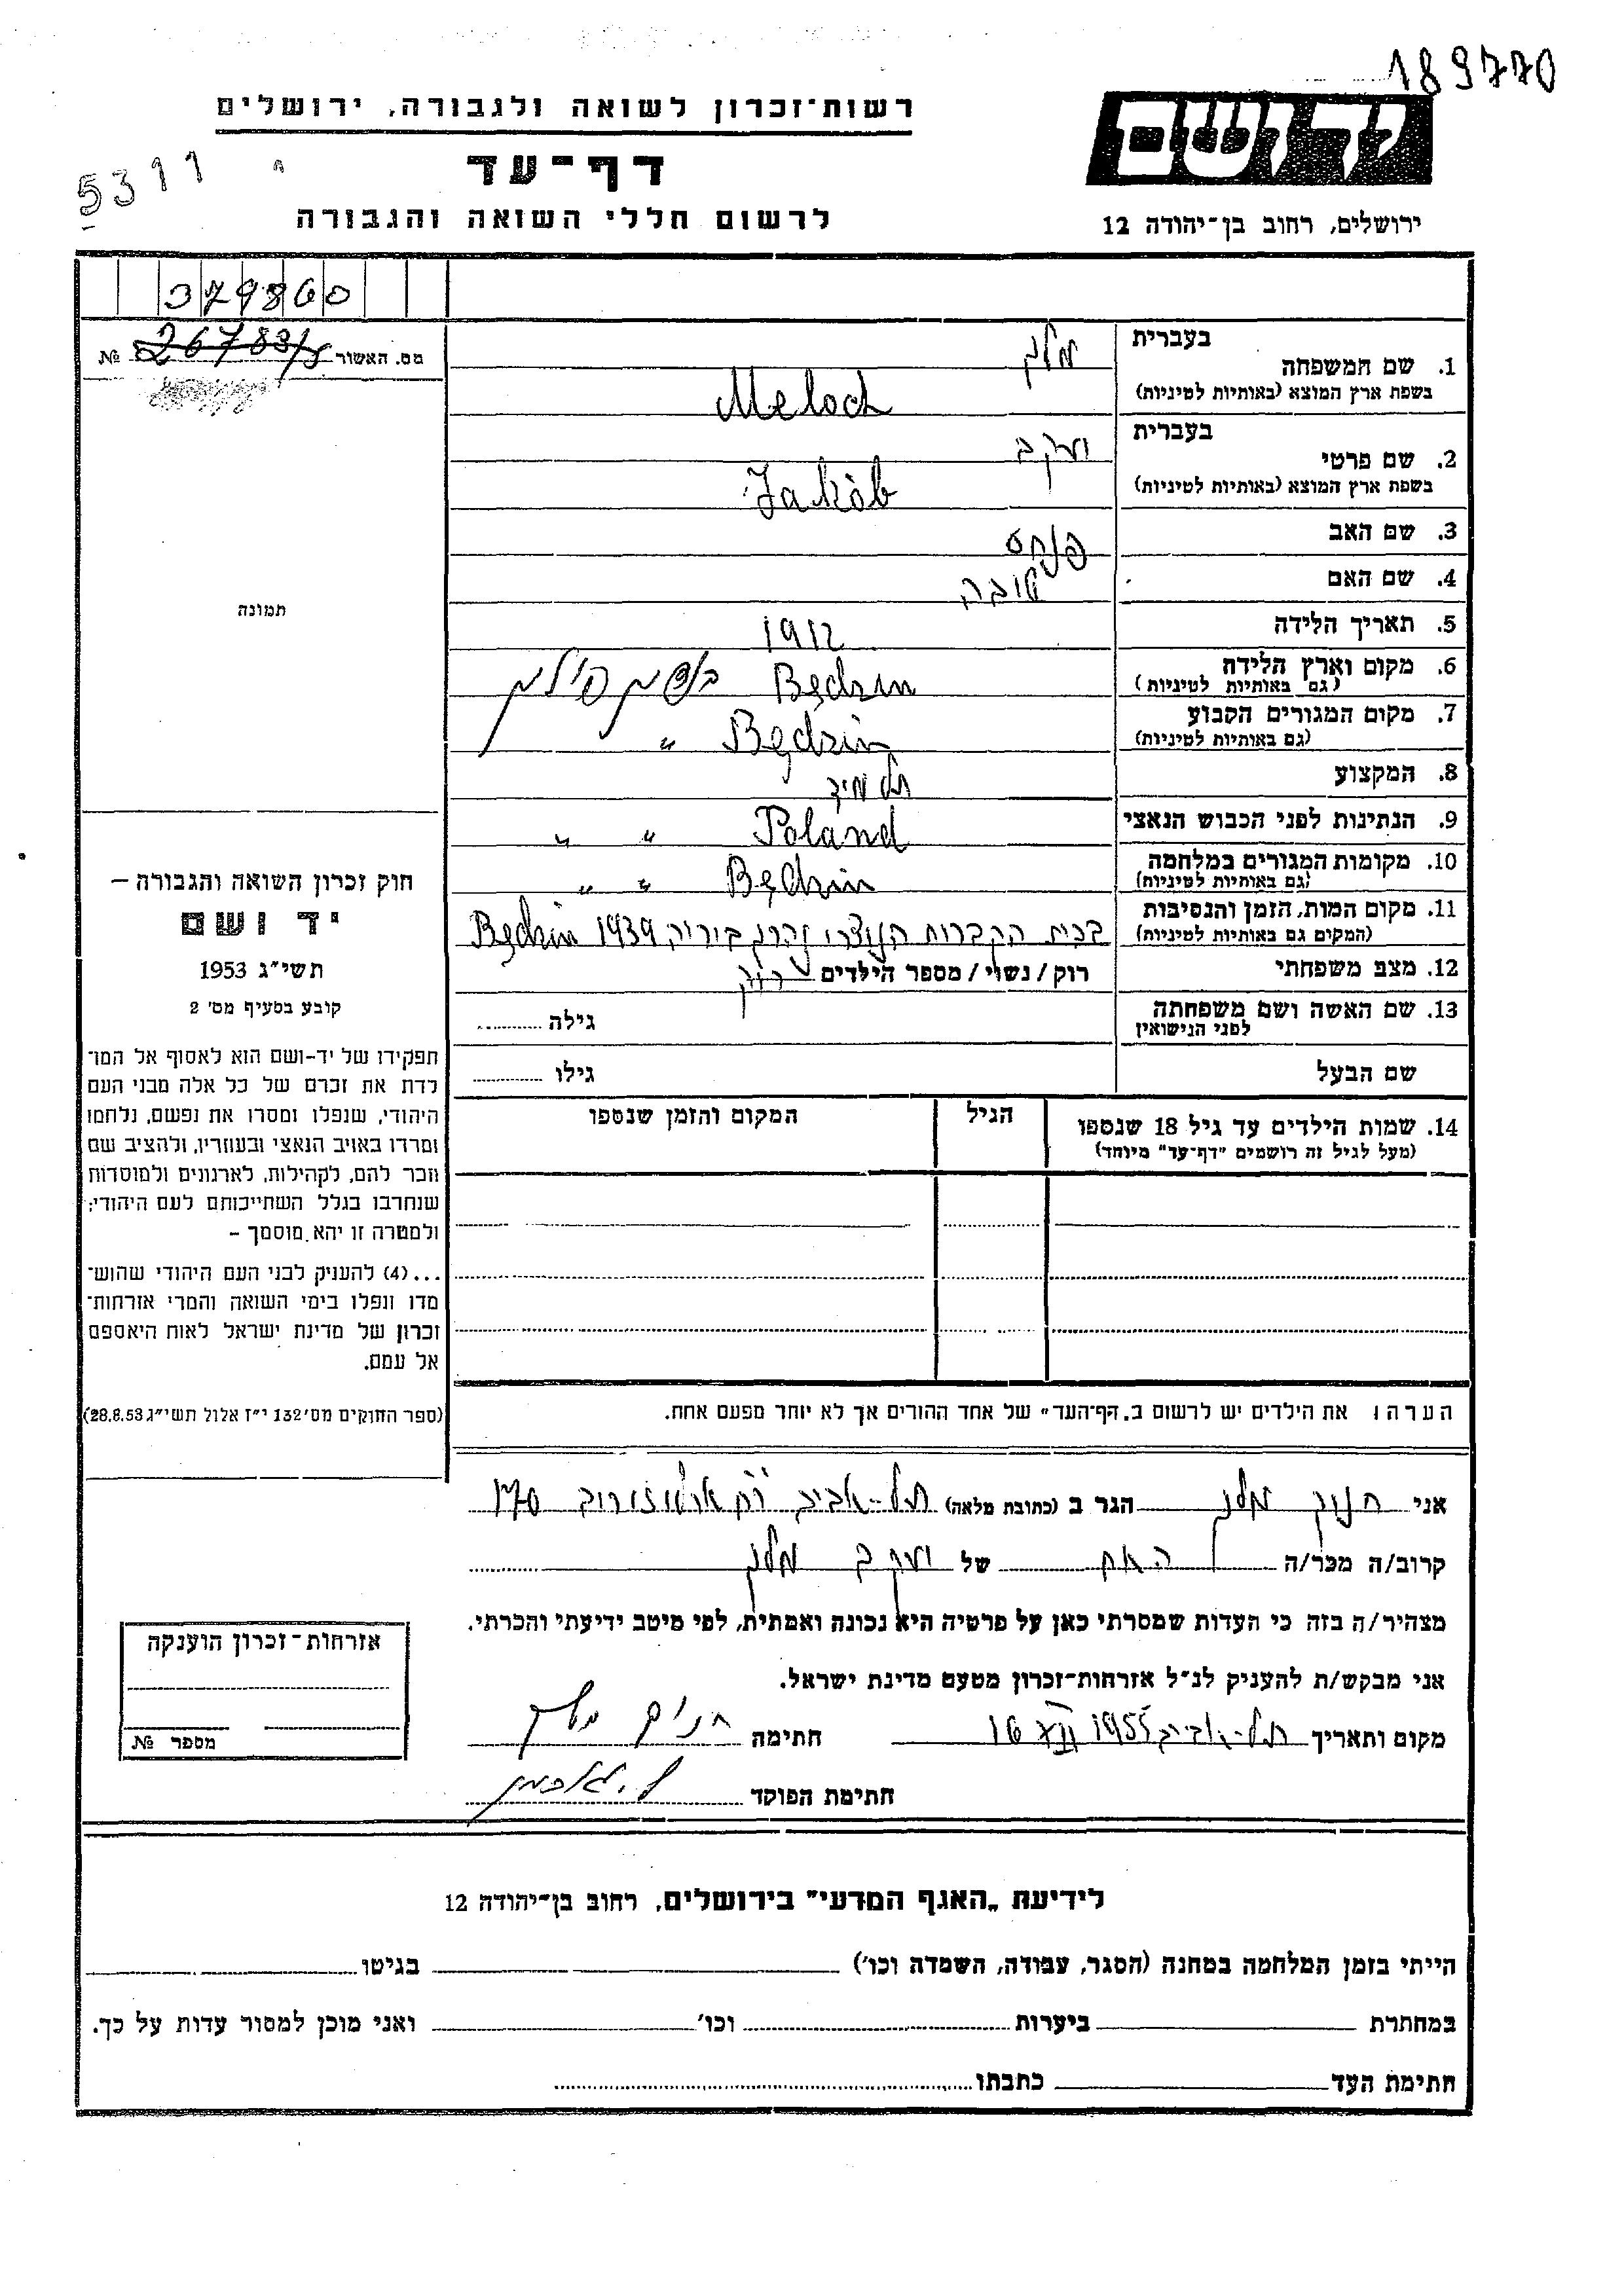 189770
רשות־זכרון לשואה ולגבורה, ירושלים
דף־עד
לרשום חללי השואה והגבורה
5311
יד ושם
ירושלים, רחוב בן־יהודה 12
379860
מס. האשור 26783/5 №
תמונה
1. שם המשפחה בעברית מלך
בשפת ארץ המוצא (באותיות לטיניות) Meloch
2. שם פרטי בעברית יעקב
בשפת ארץ המוצא (באותיות לטיניות) Jakób
3. שם האב פנחס
4. שם האם טובה
5. תאריך הלידה 1912
6. מקום וארץ הלידה (גם באותיות לטיניות) Będzin בנדין פולין
7. מקום המגורים הקבוע (גם באותיות לטיניות) Będzin "
8. המקצוע תלמיד
9. הנתינות לפני הכבוש הנאצי Poland " "
10. מקומות המגורים במלחמה (גם באותיות לטיניות) Będzin " "
11. מקום המות, הזמן והנסיבות (המקום גם באותיות לטיניות) בבית הקברות הנוצרי נהרג ביריה 1939 Będzin
12. מצב משפחתי רוק/נשוי/מספר הילדים רווק
13. שם האשה ושם משפחתה לפני הנישואין גילה
שם הבעל גילו
14. שמות הילדים עד גיל 18 שנספו הגיל המקום והזמן שנספו
(מעל לגיל זה רושמים "דף־עד" מיוחד)
חוק זכרון השואה והגבורה –
יד ושם
תשי"ג 1953
קובע בסעיף מס' 2
תפקידו של יד-ושם הוא לאסוף אל המו־
לדת את זכרם של כל אלה מבני העם
היהודי, שנפלו ומסרו את נפשם, נלחמו
ומרדו באויב הנאצי ובעוזריו, ולהציב שם
וזכר להם, לקהילות, לארגונים ולמוסדות
שנחרבו בגלל השתייכותם לעם היהודי;
ולמטרה זו יהא מוסמך –
...(4) להעניק לבני העם היהודי שהוש־
מדו ונפלו בימי השואה והמרי אזרחות־
זכרון של מדינת ישראל לאות היאספם
אל עמם.
(ספר החוקים מס' 132 י"ז אלול תשי"ג 28.8.53)
הערה: את הילדים יש לרשום ב„דף־העד" של אחד ההורים אך לא יותר מפעם אחת.
אני חנוך מלך הגר ב (כתובת מלאה) תל-אביב רח ארלוזורוב 170
קרוב/ה מכר/ה האח של יעקב מלך
מצהיר/ה בזה כי העדות שמסרתי כאן על פרטיה היא נכונה ואמתית, לפי מיטב ידיעתי והכרתי.
אני מבקש/ת להעניק לנ"ל אזרחות־זכרון מטעם מדינת ישראל.
מקום ותאריך תל-אביב 16 XII 1955 חתימה
חתימת הפוקד
אזרחות־זכרון הוענקה
מספר №
לידיעת „האגף המדעי" בירושלים, רחוב בן־יהודה 12
הייתי בזמן המלחמה במחנה (הסגר, עבודה, השמדה וכו') בגיטו
במחתרת ביערות וכו' ואני מוכן למסור עדות על כך.
חתימת העד כתבתו